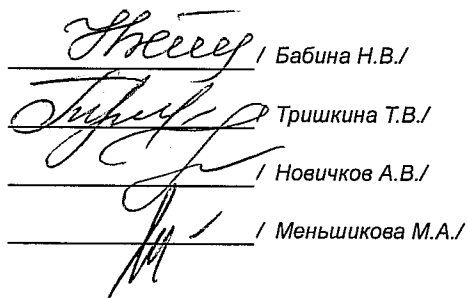 / Бабина Н.В./
/ Тришкина Т.В./
/ Новичков А.В./
/ Меньшикова М.А./